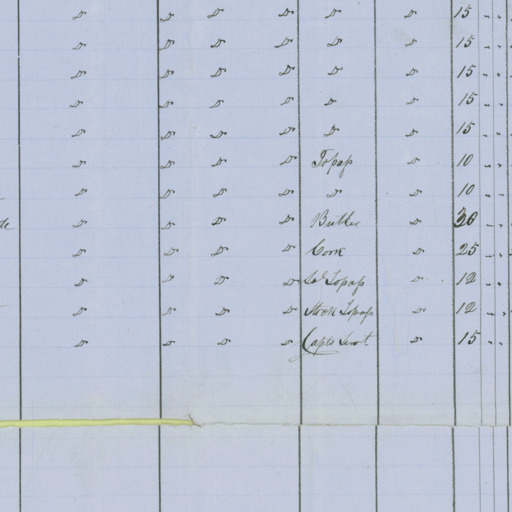 Do Do Do Do Do Do 15 " "
Do Do Do Do Do Do 15 " "
Do Do Do Do Do Do 15 " "
Do Do Do Do Do Do 15 " "
Do Do Do Do Do Do 15 " "
Do Do Do Do Topass Do 10 " "
Do Do Do Do Do Do 10 " "
Do Do Do Do Butler Do 30 " "
Do Do Do Do Cook Do 25 " "
Do Do Do Do Topass Do 12 " "
Do Do Do Do Topass Do 12 " "
Do Do Do Do Capts Servt Do 15 " "